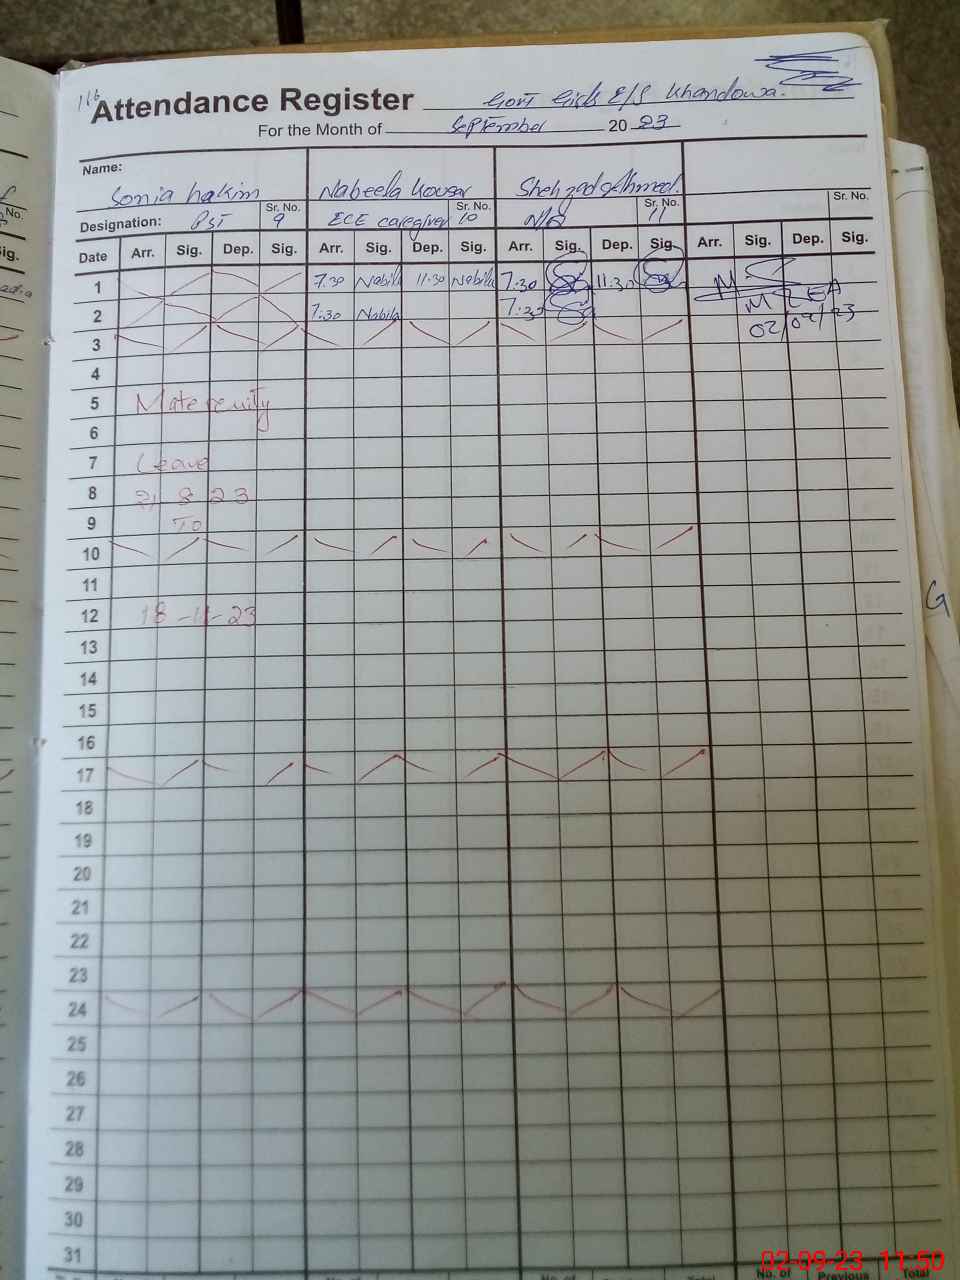 116
Attendance Register Govt Girls E/S Khandowa.
For the Month of September 2023
Name:
Sonia hakim Nabeela kousar Shehzad Ahmed.
Designation: PST Sr. No. 9 ECE caregiver Sr. No. 10 N/Q Sr. No. 11 Sr. No.
Date Arr. Sig. Dep. Sig. Arr. Sig. Dep. Sig. Arr. Sig. Dep. Sig. Arr. Sig. Dep. Sig.
1 7.30 Nabila 11:30 Nabila 7.30 11:30
2 7:30 Nabila 7:30 MEA
02/09/23
3
4
5 Maternity
6
7 Leave
8 21 8 23
9 To
10
11
12 18-11-23
13
14
15
16
17
18
19
20
21
22
23
24
25
26
27
28
29
30
31
No. of Previous Total
02-09-23 11:50
No.
Sig.
G